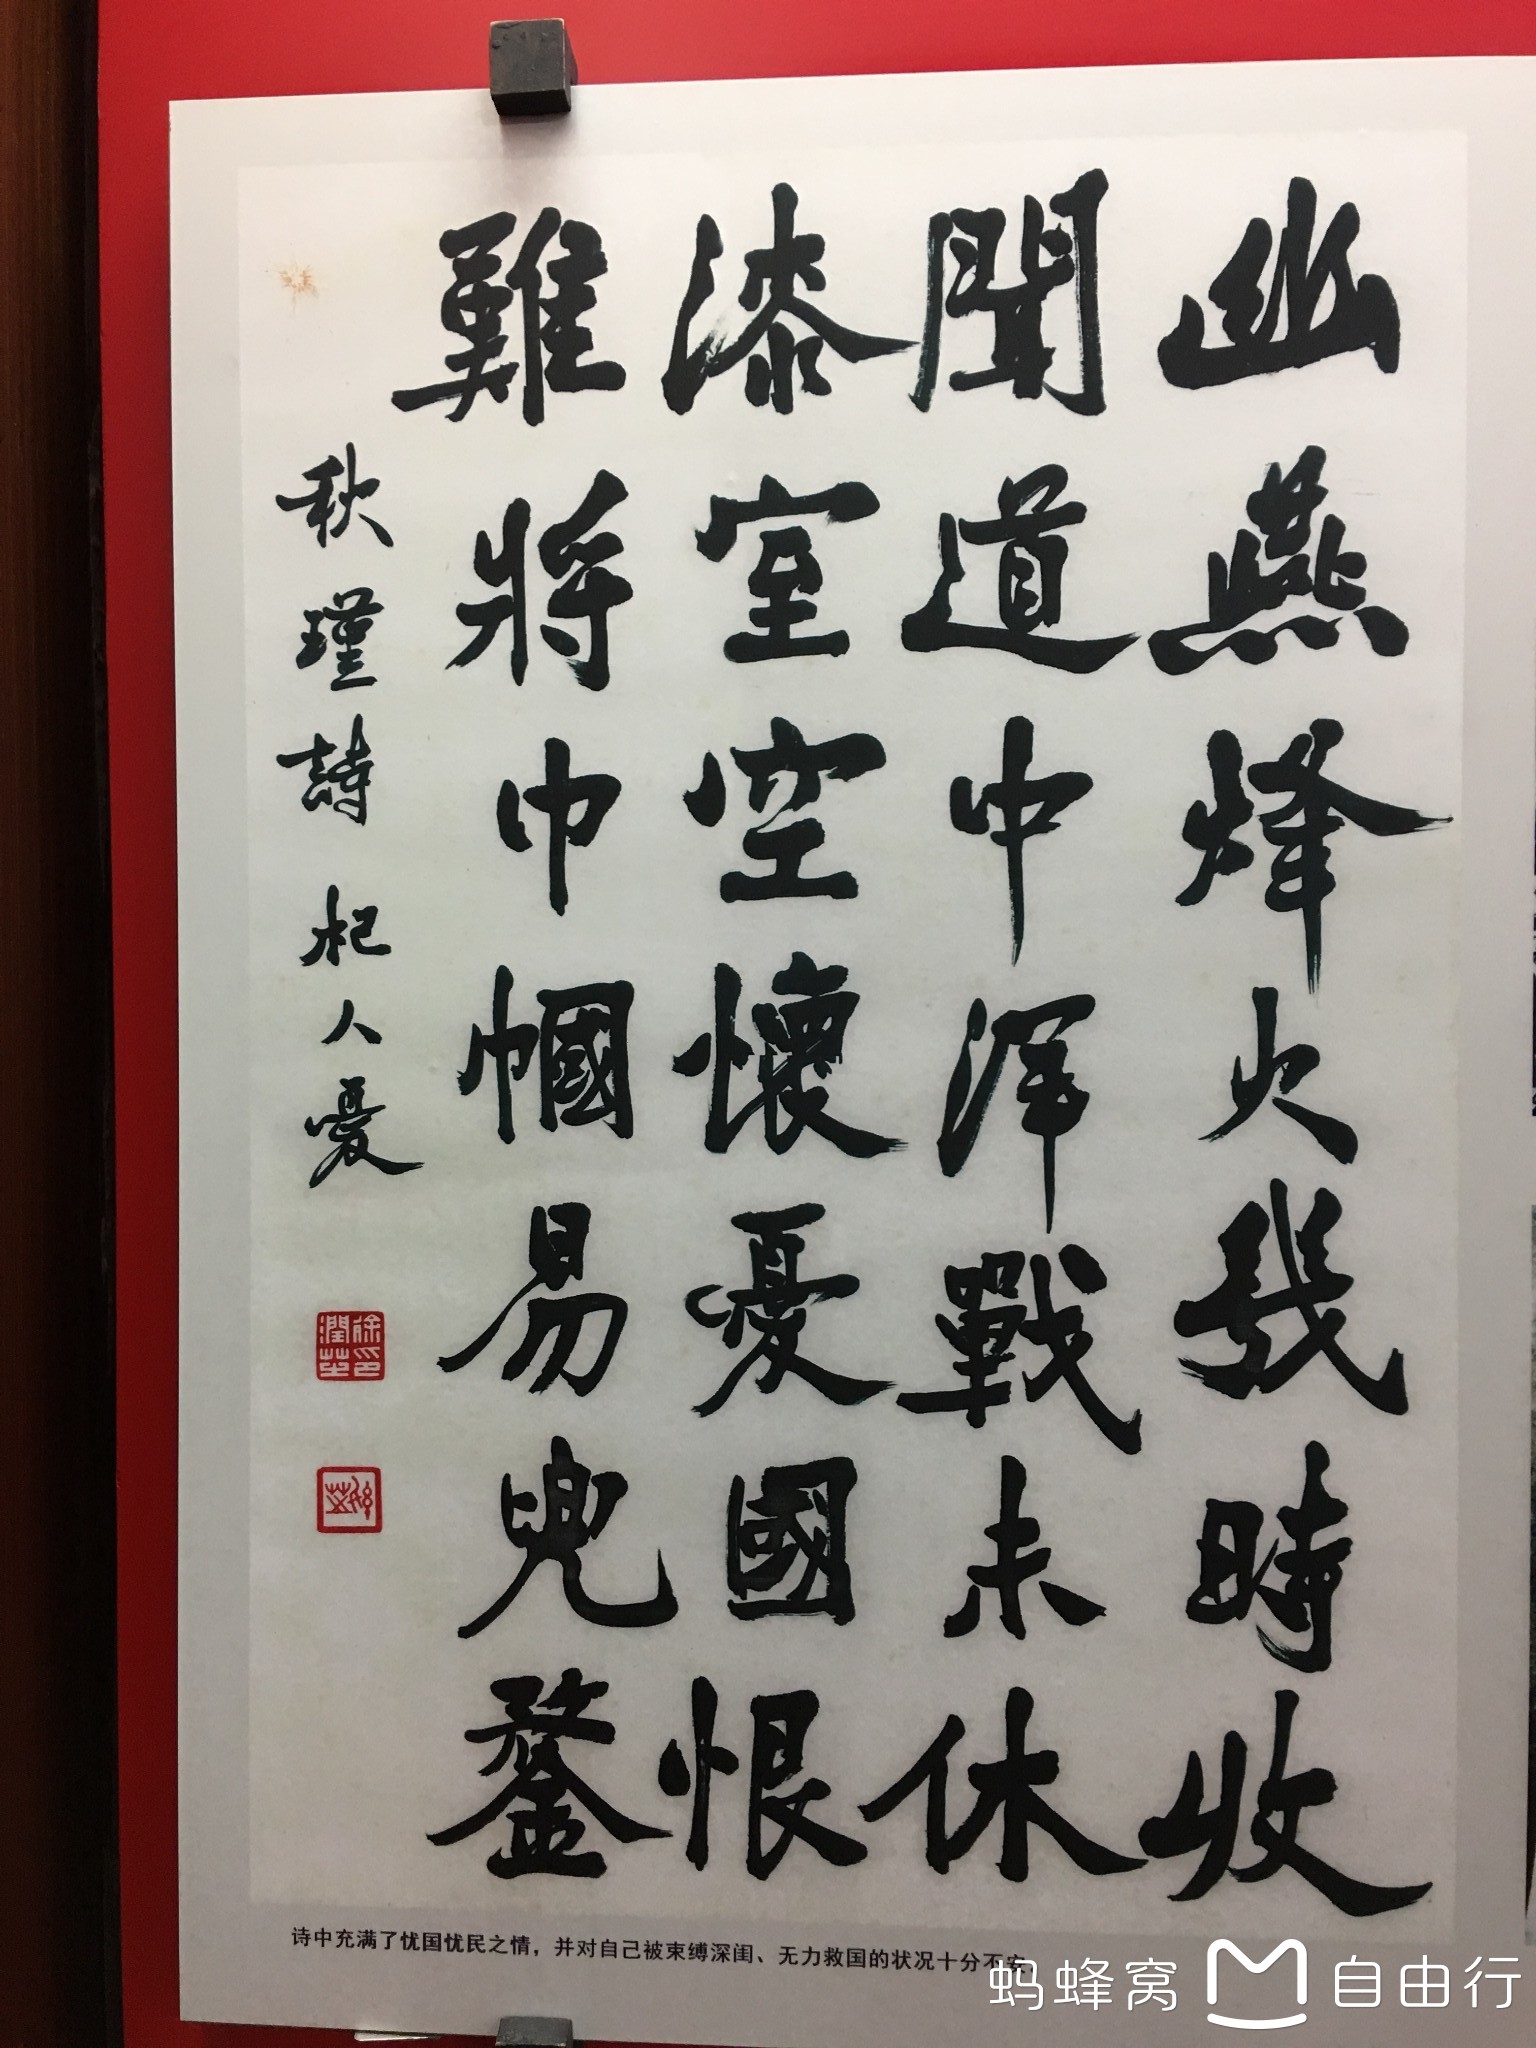 幽燕烽火幾時收
聞道中洋戰未休
漆室空懷憂國恨
難將巾幗易兜鍪
秋瑾詩 杞人憂
徐潤芝印
诗中充满了忧国忧民之情，并对自己被束缚深闺、无力救国的状况十分不安。
蚂蜂窝 自由行